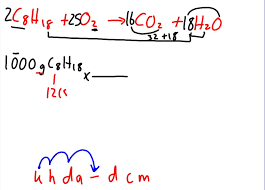 2C₈H₁₈ + 25O₂ → 16CO₂ + 18H₂O
32 + 18
10̄00 g C₈H₁₈ x
k h da – d c m